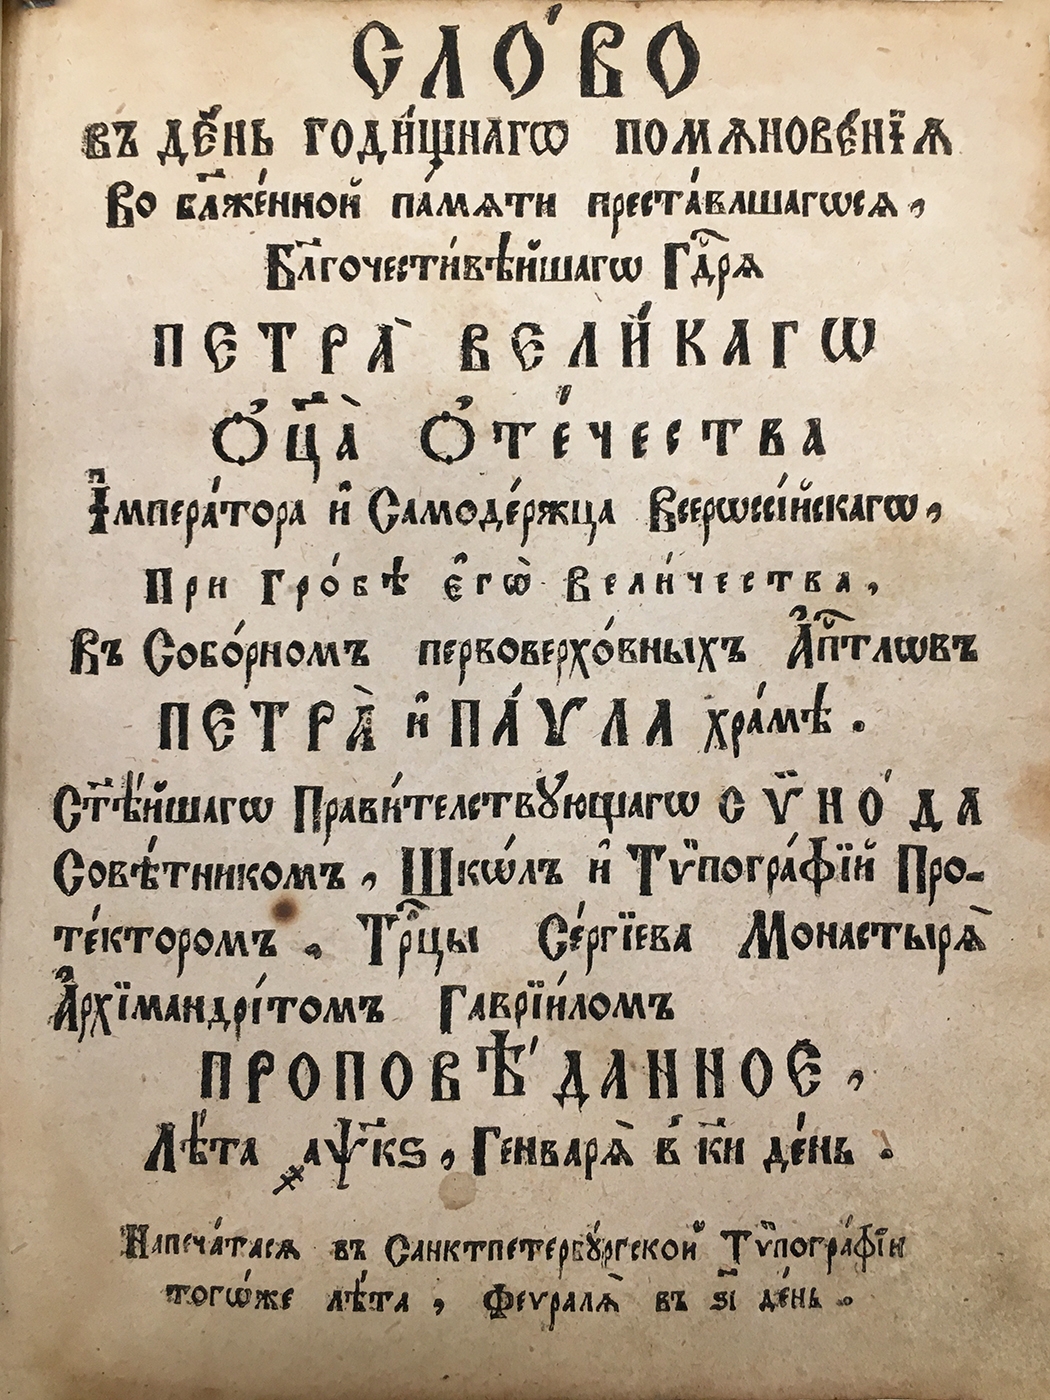 СЛО́ВО
въ де́нь годи́щнагѡ помѧнове́нїѧ
Во бл҃же́нной па́мѧти преста́влшагѡсѧ,
Бл҃гочести́вѣйшагѡ Гдⷭ҇рѧ
ПЕТРА̀ ВЕЛИ́КАГѠ
Ѻ҆ц҃а̀ Ѻ҆те́чества
І҆мпера́тора и҆ Самоде́ржца Всерѡссі́йскагѡ,
При Гро́бѣ є҆гѡ̀ Вели́чества,
Въ Собо́рномъ первоверхо́вныхъ А҆пⷭ҇тлѡвъ
ПЕТРА̀ и҆ ПА́ѴЛА хра́мѣ.
Ст҃ѣ́йшагѡ Прави́телствꙋющагѡ СѴ̈НО́ДА
Совѣ́тникомъ, Шкѡ́лъ и҆ Тѵ̈погра́фїй Про-
те́кторомъ, Трⷪ҇цы Се́ргїева Монастырѧ̀
А҆рхїмандрі́томъ Гаврїи́ломъ
ПРОПОВѢ́ДАННОЕ,
Лѣ́та ҂аѱ҃кѕ, Генварѧ̀ в҆ к҃и де́нь.
Напеча́тасѧ въ Санктпетербꙋ́ргской Тѵ̈погра́фїи
тогѡ́же лѣ́та, Феѵралѧ̀ въ ѕ҃і де́нь.